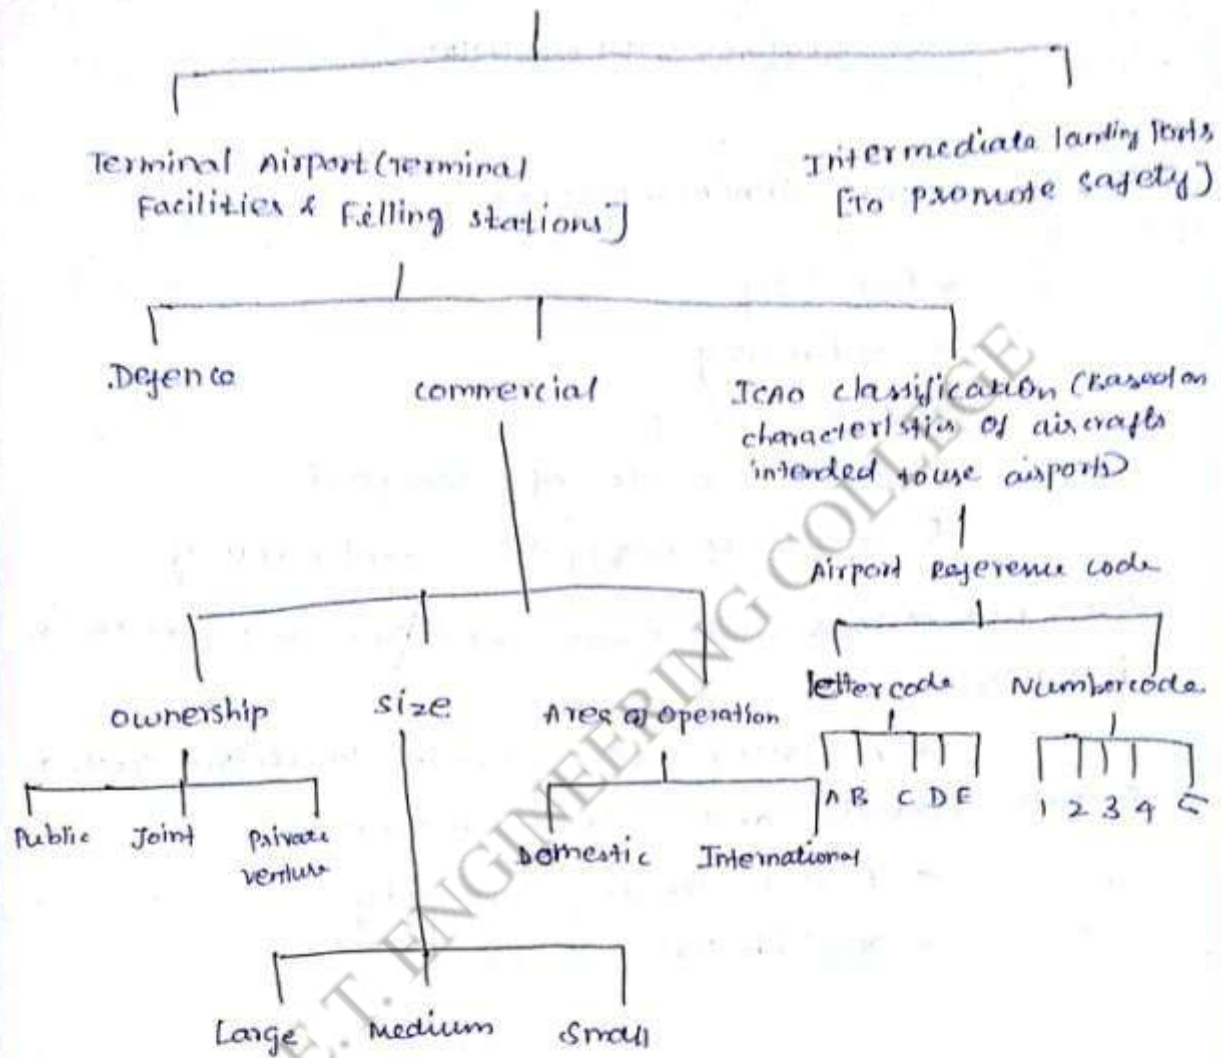 Terminal Airport (Terminal
Facilities & Filling stations]
Intermediate landing
[To promote safety)
Defence
commercial
ICAO classification (Based on
characteristics of aircrafts
intended to use airports)
Airport Reference code
letter code
Number code
ownership
size
Area of operation
A B C D E
1 2 3 4 5
Public
Joint
Private
venture
Domestic
International
Large
Medium
Small
E.T. ENGINEERING COLLEGE